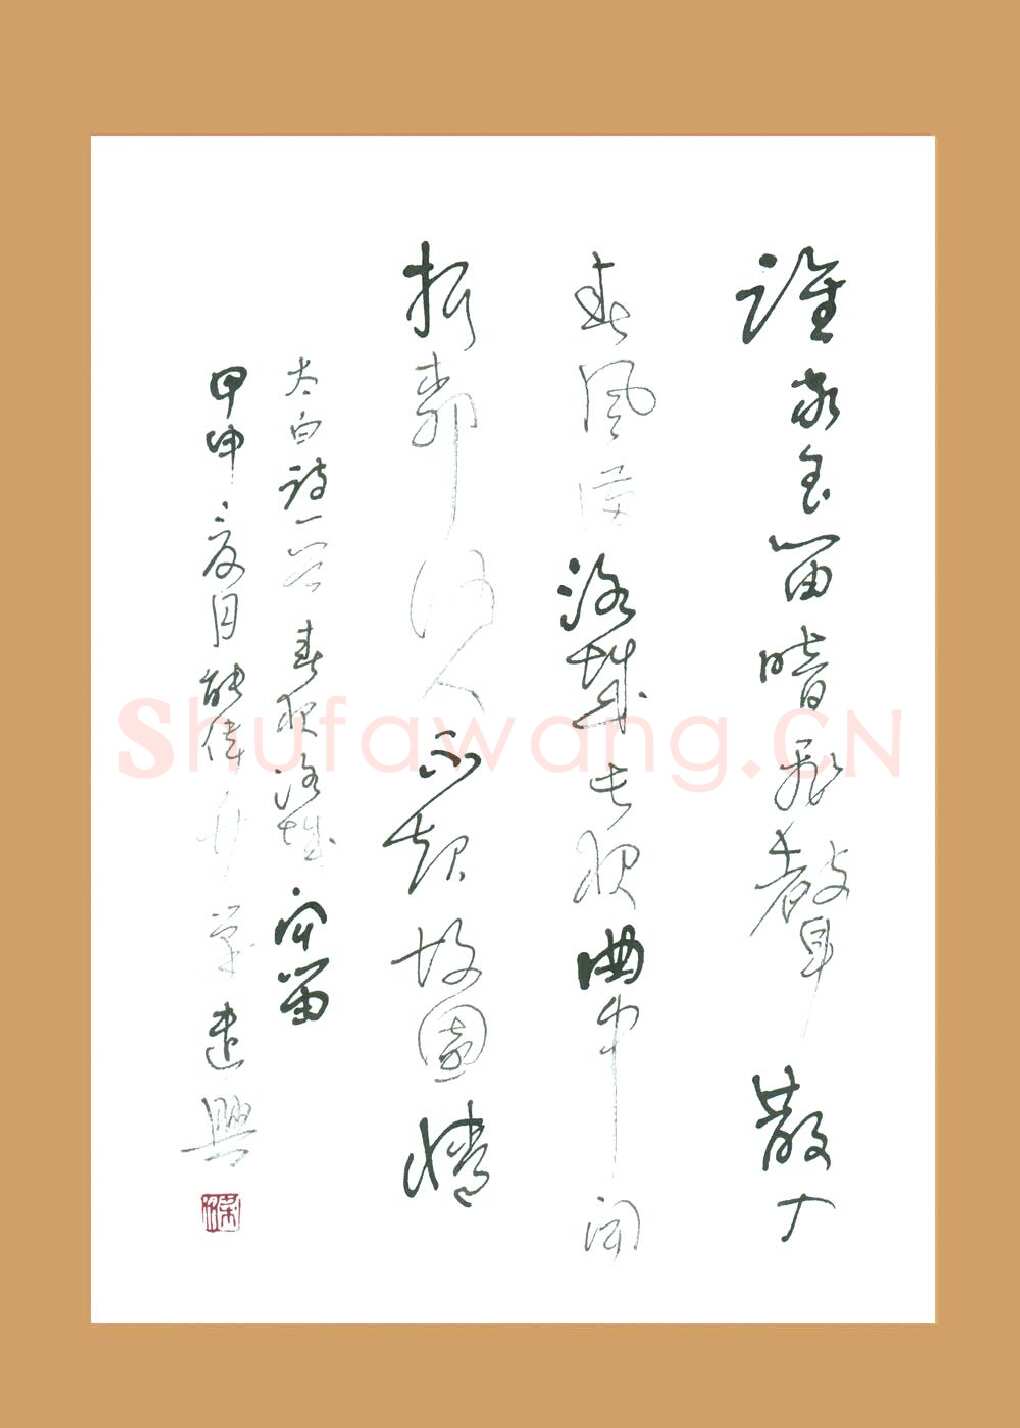 誰家玉笛暗飛聲散入
春風滿洛城此夜曲中聞
折柳何人不起故園情
太白詩一首春夜洛城聞笛
甲申夏月能偉遣興
Shufawang.CN